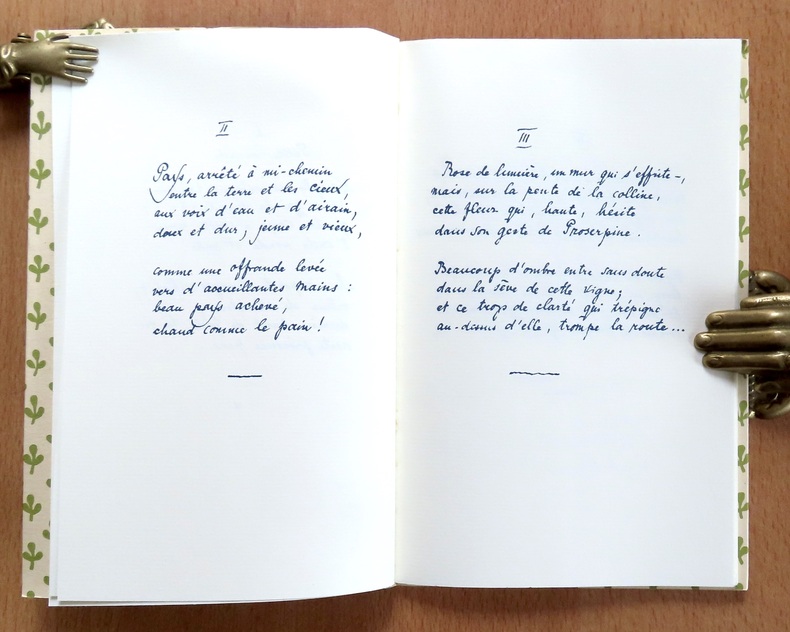 II
Pays, arrêté à mi-chemin
entre la terre et les cieux,
aux voix d'eau et d'airain,
doux et dur, jeune et vieux,
comme une offrande levée
vers d'accueillantes mains :
beau pays achevé,
chaud comme le pain !
III
Rose de lumière, un mur qui s'effrite –,
mais, sur la pente de la colline,
cette fleur qui, haute, hésite
dans son geste de Proserpine.
Beaucoup d'ombre entre sans doute
dans la sève de cette vigne ;
et ce trop de clarté qui trépigne
au-dessus d'elle, trompe la route...